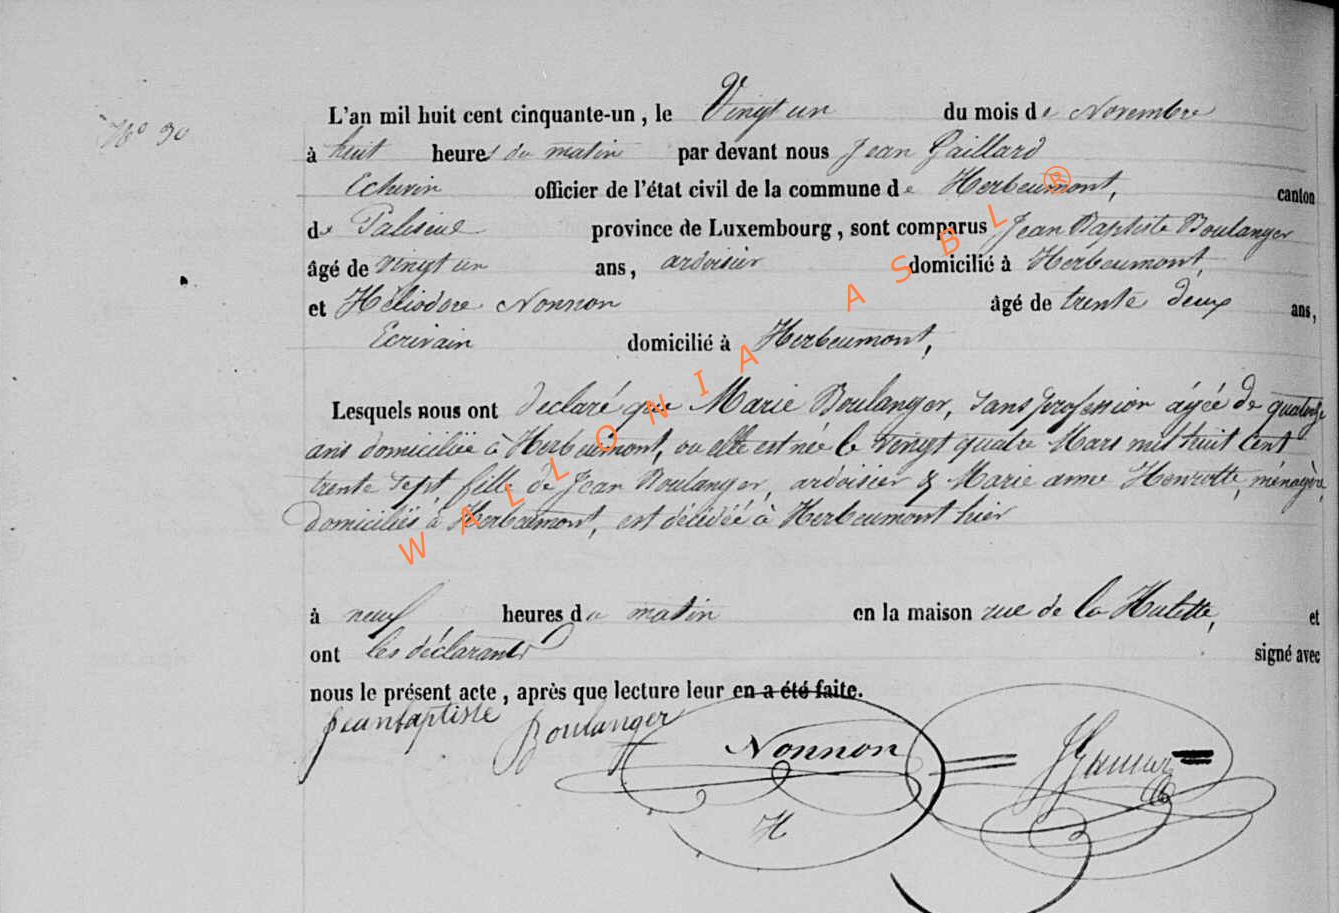 N° 30
L'an mil huit cent cinquante-un, le Vingt un du mois de Novembre
à huit heures du matin par devant nous Jean Gaillard
Echevin officier de l'état civil de la commune de Herbeumont, canton
de Paliseul province de Luxembourg, sont comparus Jean Baptiste Boulanger
âgé de vingt un ans, ardoisier domicilié à Herbeumont,
et Héliodore Nonnon âgé de trente deux ans,
Ecrivain domicilié à Herbeumont,
Lesquels nous ont declaré que Marie Boulanger, sans profession agée de quatorze
ans domiciliée à Herbeumont, ou elle est née le vingt quatre Mars mil huit Cent
trente sept, fille de Jean Boulanger, ardoisier & Marie anne Henrotte, ménagère,
domiciliés à Herbeumont, est décédée à Herbeumont hier
à neuf heures du matin en la maison rue de la Hulette, et
ont les déclarants signé avec
nous le présent acte, après que lecture leur en a été faite.
Jean baptiste Boulanger
Nonnon
H
WALLONIA ASBL ®